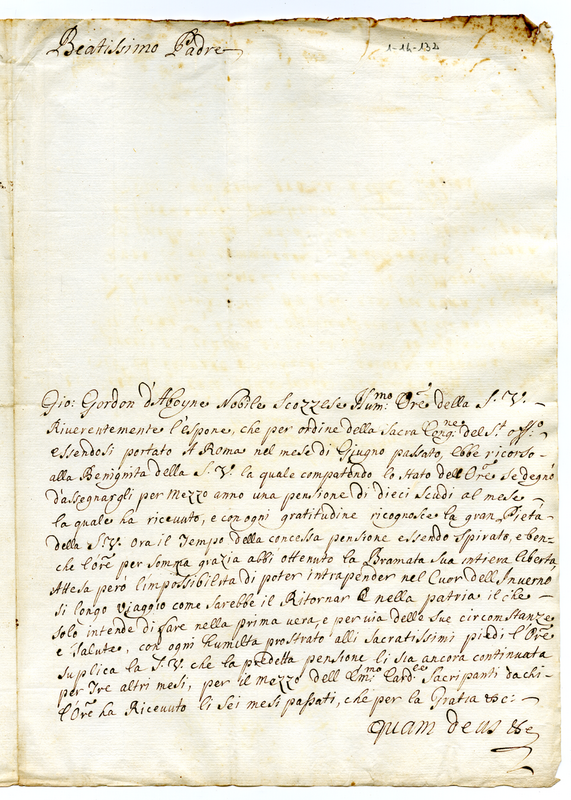 Beatissimo Padre
1-14-132
Gio: Gordon d'Aboyne Nobile Scozzese Hum:mo Ore della S. V.
Riverentemente l'espone, che per ordine della Sacra Congne. del St. offo
essendosi portato A Roma nel mese di Giugno passato, ebbe ricorso
alla Benignità della S. V. la quale compatendo lo stato dell Ore Se degnò
d'assegnargli per Mezzo anno una pensione di dieci scudi al mese
la quale ha ricevuto, e con ogni gratitudine ricognosce la gran Pietà
della S. V. Ora il Tempo della concessa pensione essendo spirato, e ben-
che l'Ore per somma grazia abbi ottenuto la Bramata Sua intiera libertà,
Attesa però l'impossibilità di poter intrapender nel Cuor dell Inverno
si longo viaggio come sarebbe il Ritornar nella patria il che
solo intende di fare nella prima vera, e per via delle sue circumstanze
e Salute, con ogni humiltà prostrato alli Sacratissimi piedi l'Ore
Suplica la S. V. che la predetta pensione li sia ancora continuata
per Tre altri mesi, per il mezzo dell Emi:mo Cardle Sacripanti da chi
l'Ore ha Ricevuto li Sei mesi passati, che per la Gratia &c:
quam deus &c